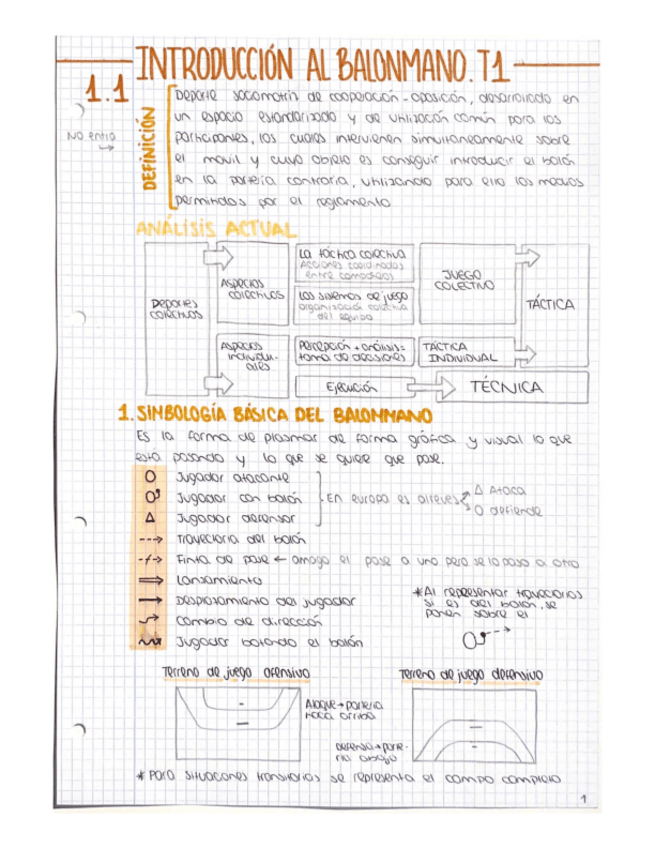 INTRODUCCIÓN AL BALONMANO. T1
1.1
DEFINICIÓN
Deporte socomotriz de cooperación-oposición, desarrollado en
un espacio estandarizado y de utilización común para los
participantes, los cuales intervienen simultaneamente sobre
el movil y cuyo objeto es conseguir introducir el balón
en la portería contraria, utilizando para ello los medios
permitidos por el reglamento
No entra
→
ANÁLISIS ACTUAL
Deportes
colectivos
Aspectos
colectivos
La táctica colectiva
Acciones coordinadas
entre compañeros
Los sistemas de juego
organización colectiva
del equipo
JUEGO
COLECTIVO
TÁCTICA
Aspectos
individu-
ales
Percepción + análisis =
toma de decisiones
TÁCTICA
INDIVIDUAL
Ejecución
TÉCNICA
1. SIMBOLOGÍA BÁSICA DEL BALONMANO
Es la forma de plasmar de forma gráfica y visual lo que
esta pasando y lo que se quiere que pase.
Jugador atacante
Jugador con balón
En europa es alreves
Δ Ataca
O defiende
Jugador defensor
Trayectoria del balón
Finta de pase ← amago el pase a uno pero se lo paso a otro
Lanzamiento
Desplazamiento del jugador
Cambio de dirección
Jugador botando el balón
*Al representar trayectorias
si es del balón, se
ponen sobre el
Terreno de juego ofensivo
Terreno de juego defensivo
Ataque → portería
hacia arriba
Defensa → porte-
ria abajo
* Para situaciones transitorias se representa el campo completo
1